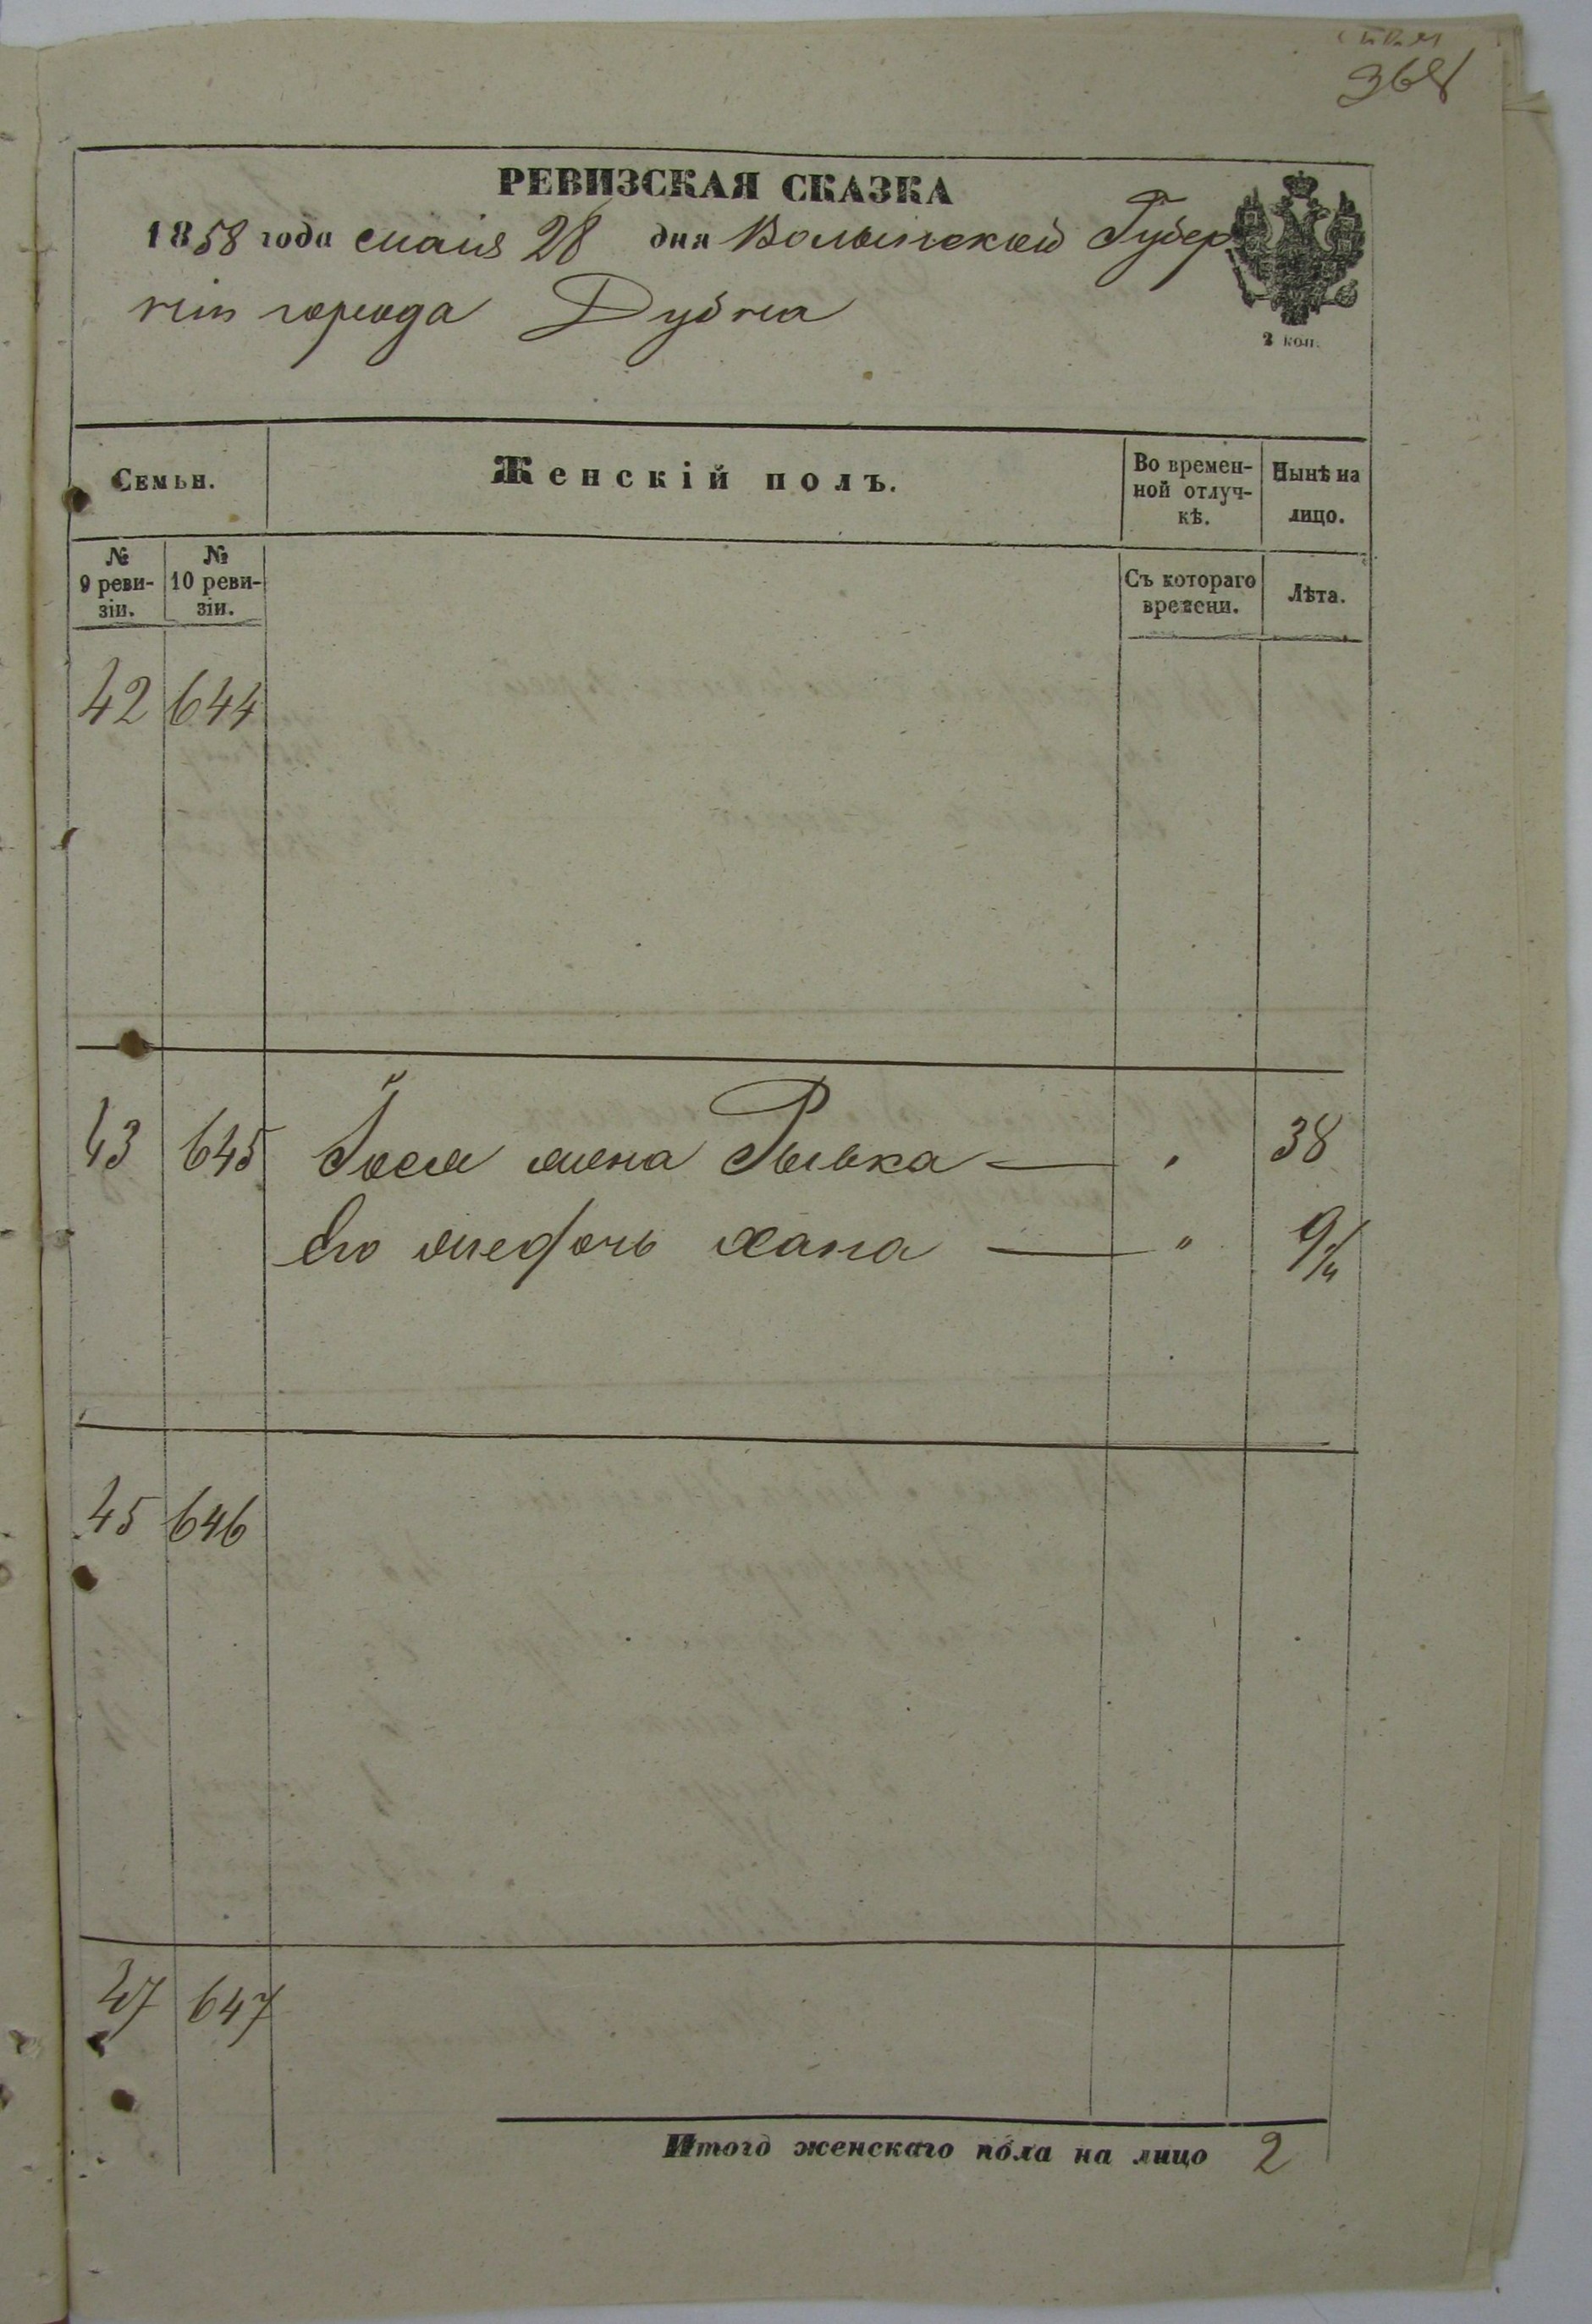 368
РЕВИЗСКАЯ СКАЗКА
1858 года маія 28 дня Волынской Губер
ніи города Дубна
2 коп.
Семьи.
Женскій полъ.
Во времен-
ной отлуч-
кѣ.
Нынѣ на
лицо.
№
9 реви-
зіи.
№
10 реви-
зіи.
Съ котораго
времени.
Лѣта.
42 644
43 645 жена Рывка — " 38
Его дочь Хана — " 9
45 646
47 647
Итого женскаго пола на лицо 2